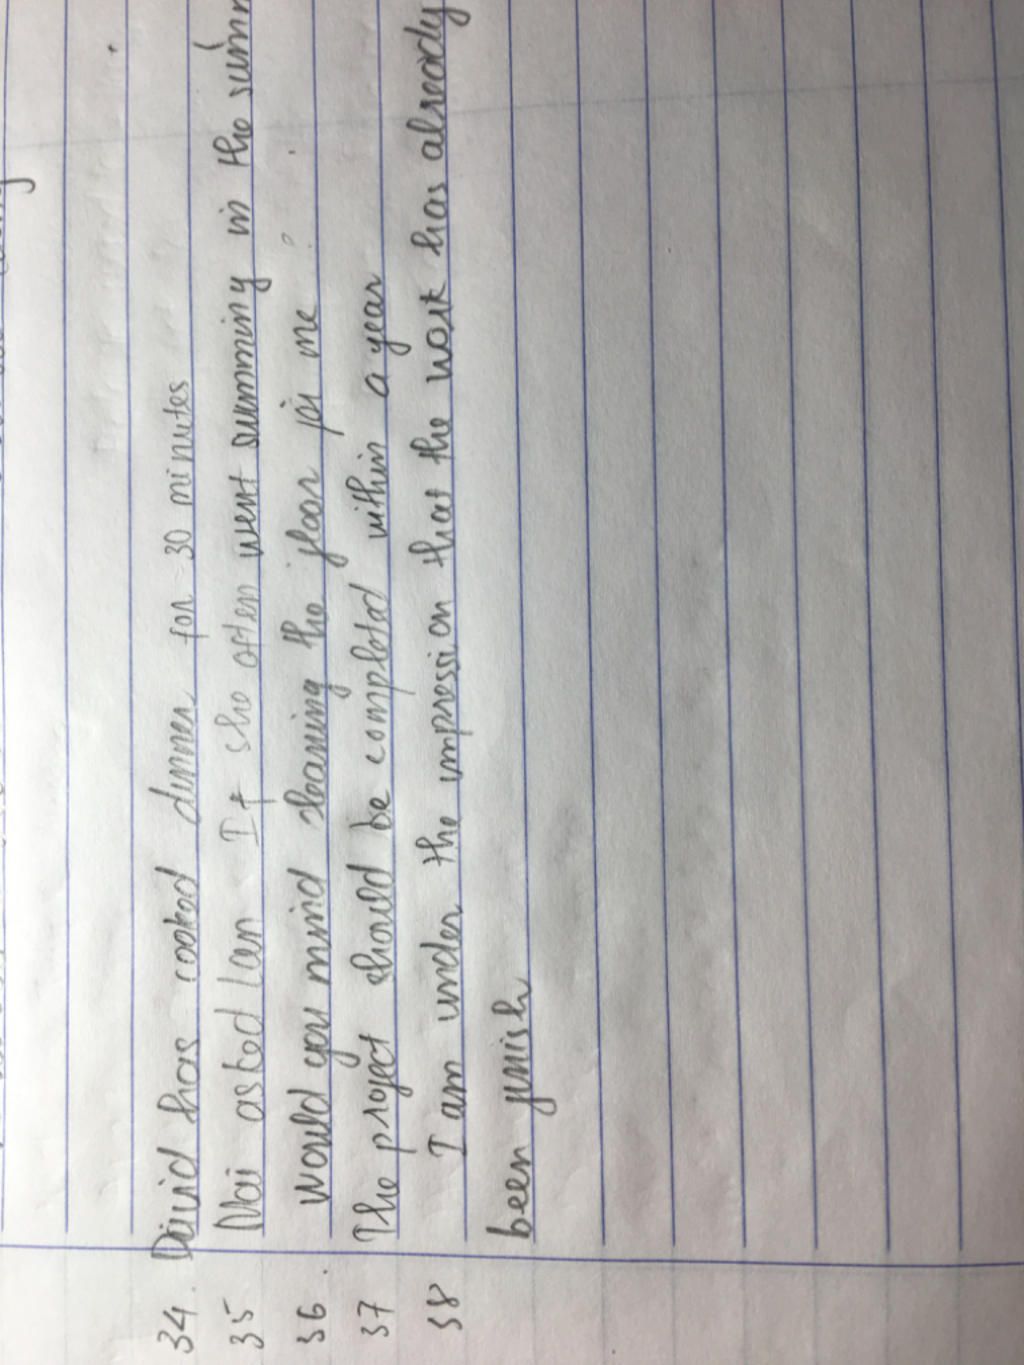 34. David has cooked dinner for 30 minutes
35 Mai asked Lan If she often went summing in the summ
36. Would you mind cleaning the floor for me?
37 The project should be completed within a year
38 I am under the impression that the work has already
been finish